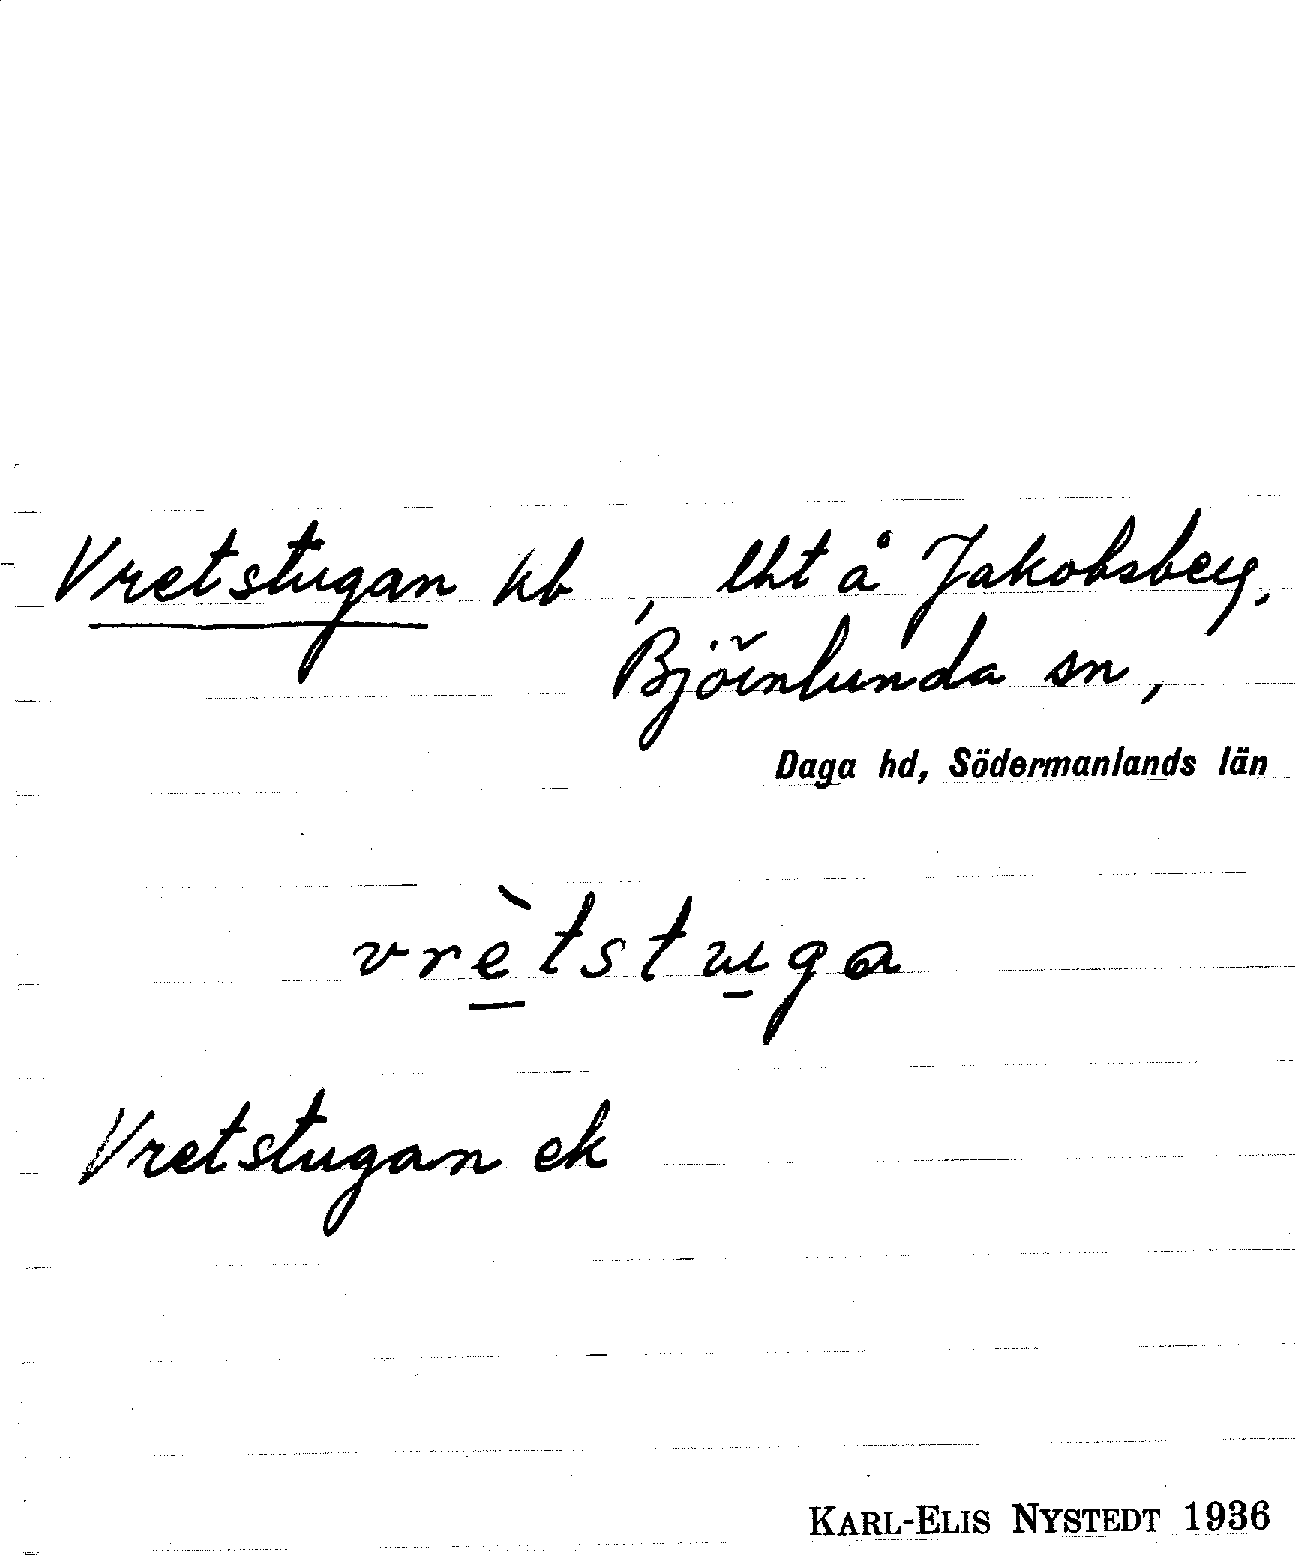 Vretstugan hb, lht å Jakobsberg,
Björnlunda sn,
Daga hd, Södermanlands län
vrètstuga
Vretstugan ek
KARL-ELIS NYSTEDT 1936